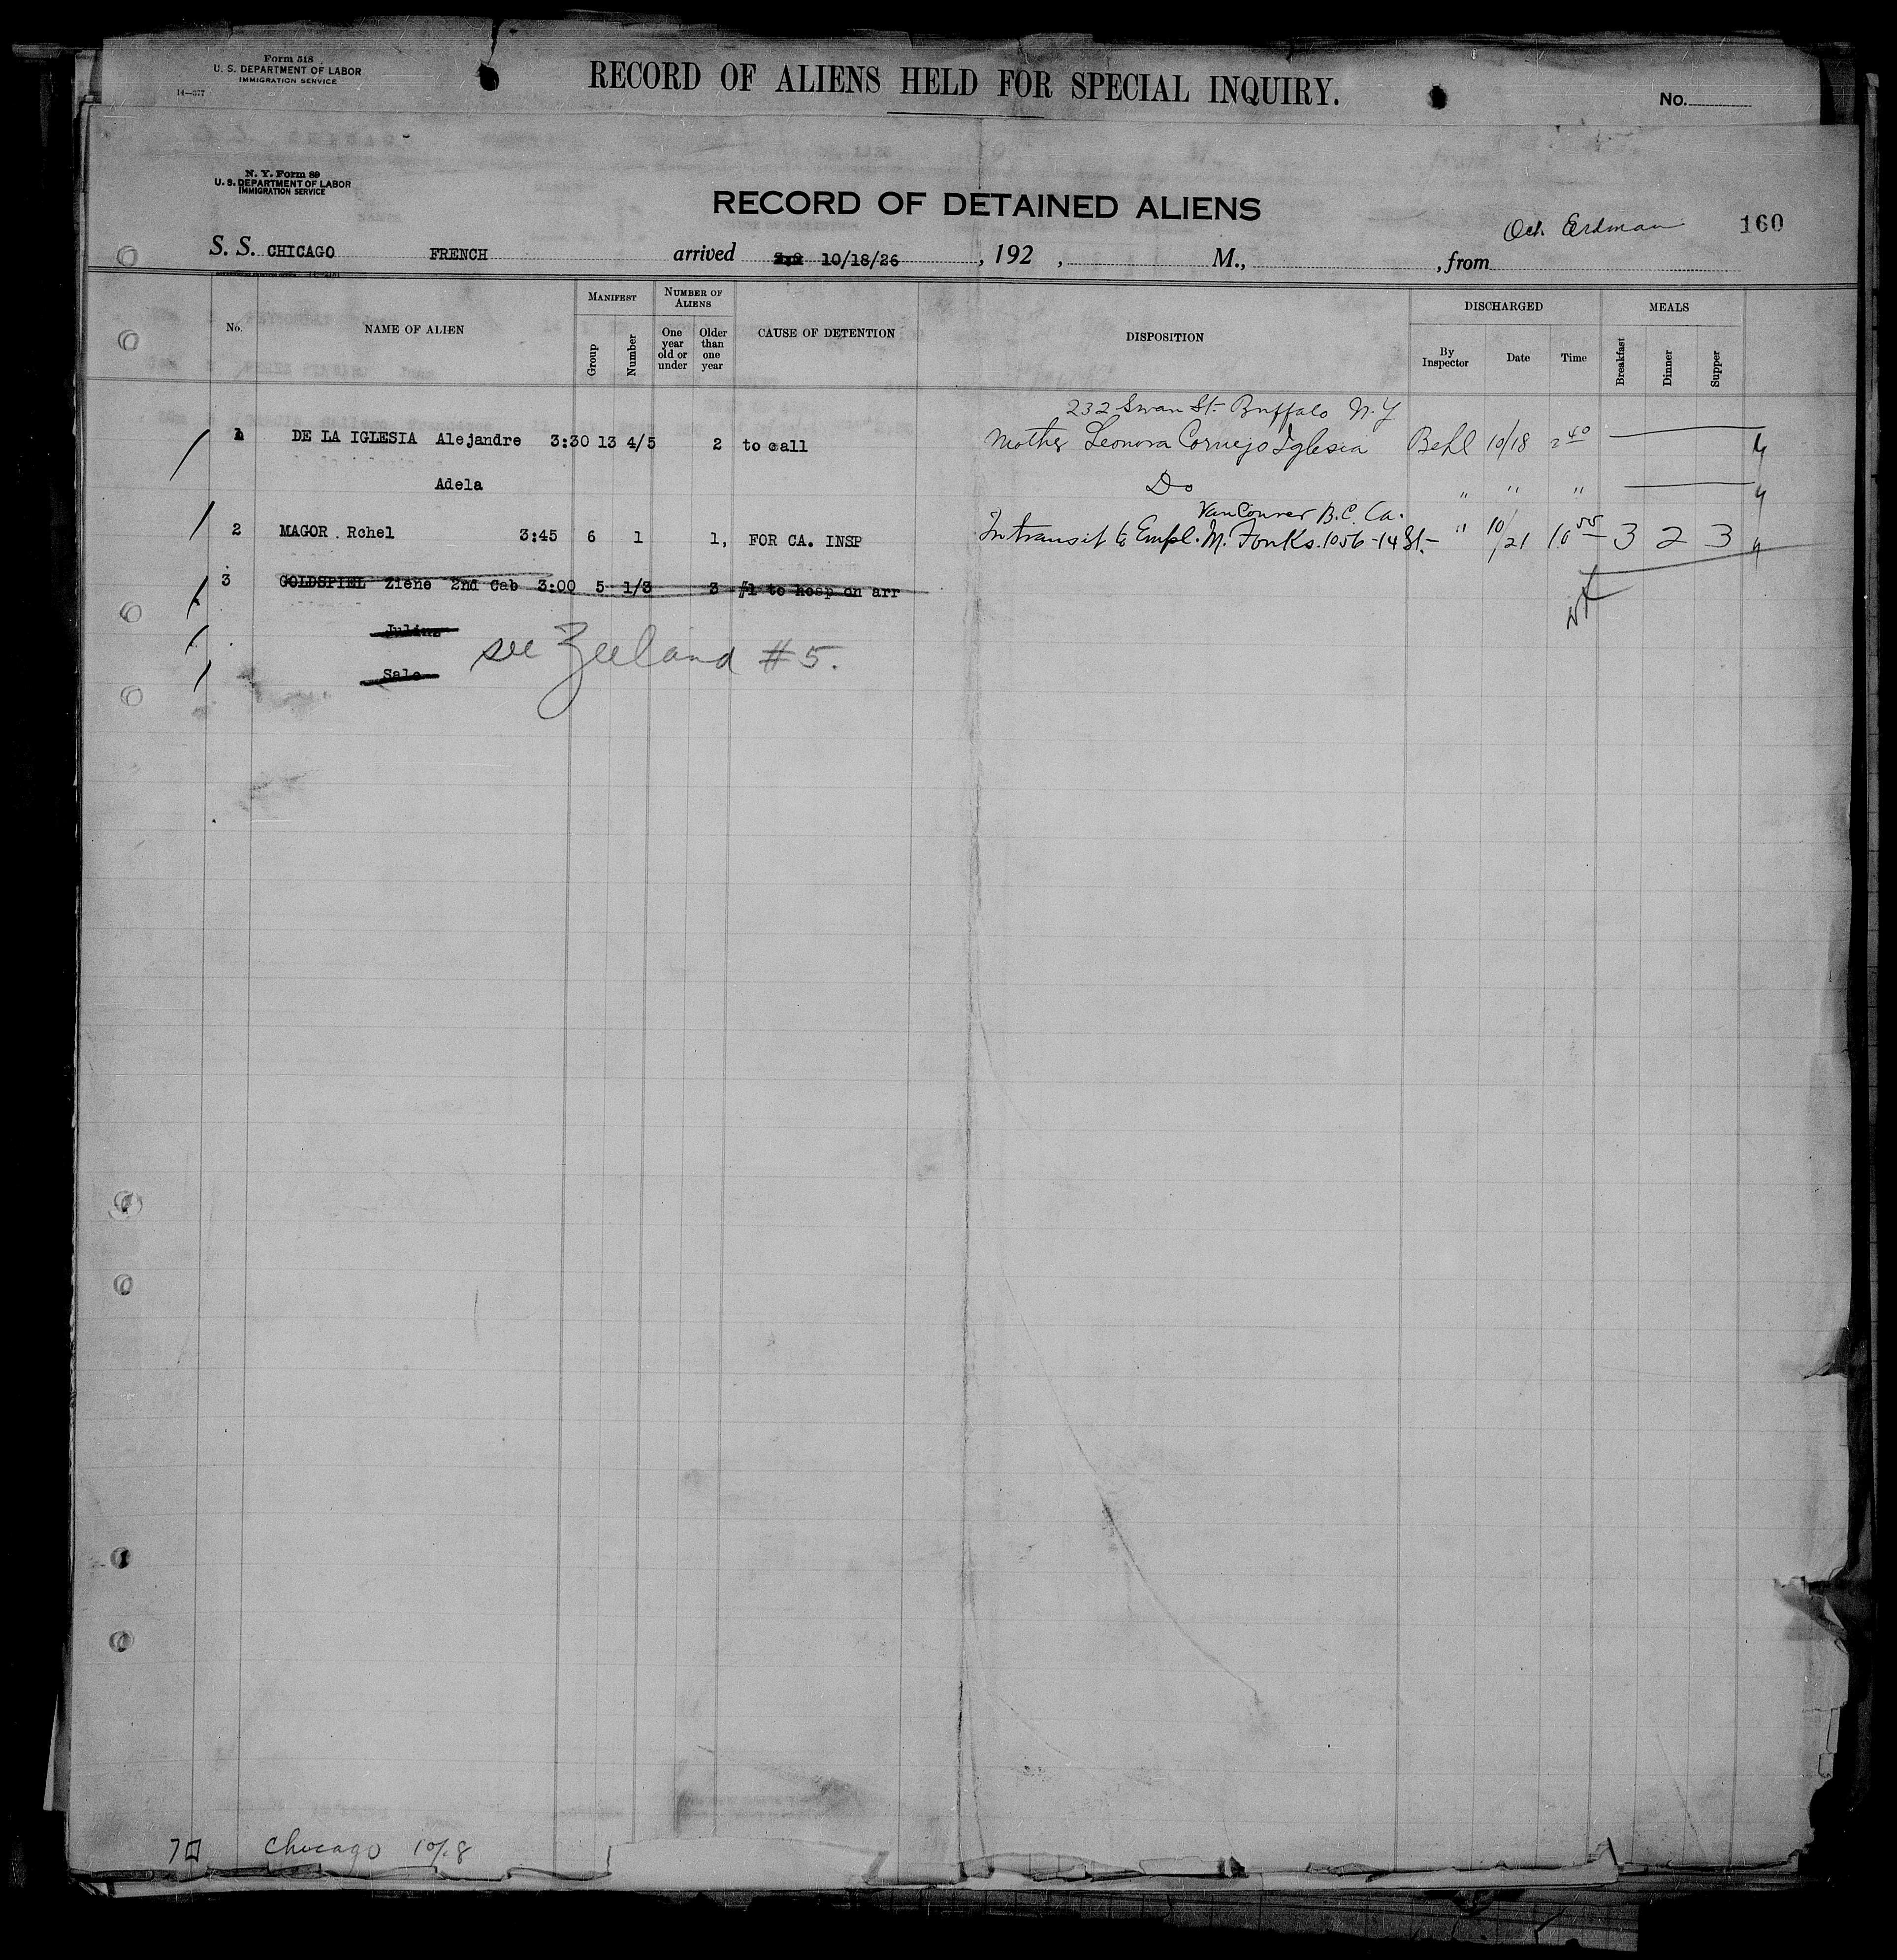 Form 518
U. S. DEPARTMENT OF LABOR
IMMIGRATION SERVICE
14—377
RECORD OF ALIENS HELD FOR SPECIAL INQUIRY.
No.
N. Y. Form 89
U. S. DEPARTMENT OF LABOR
IMMIGRATION SERVICE
RECORD OF DETAINED ALIENS
Erdman 160
S. S. CHICAGO FRENCH arrived 10/18/26 , 192 , M., , from
No. NAME OF ALIEN MANIFEST Group Number NUMBER OF ALIENS One year old or under Older than one year CAUSE OF DETENTION DISPOSITION DISCHARGED By Inspector Date Time MEALS Breakfast Dinner Supper
232 Swan St. Buffalo N.Y
1 DE LA IGLESIA Alejandre 3:30 13 4/5 2 to call Mother Leonora Cornejo Iglesia Behl 10/18 2 40
Adela Do " " "
VanCouver B.C. Ca.
2 MAGOR Rchel 3:45 6 1 1, FOR CA. INSP Intransit to Empl. M. Fonks. 1056-14 St. " 10/21 3 2 3
3 GOLDSPIEL Ziene 2nd Cab 3:00 5 1/3 3 /1 to hosp on arr
see Zeeland #5.
Sale
Chicago 10/18